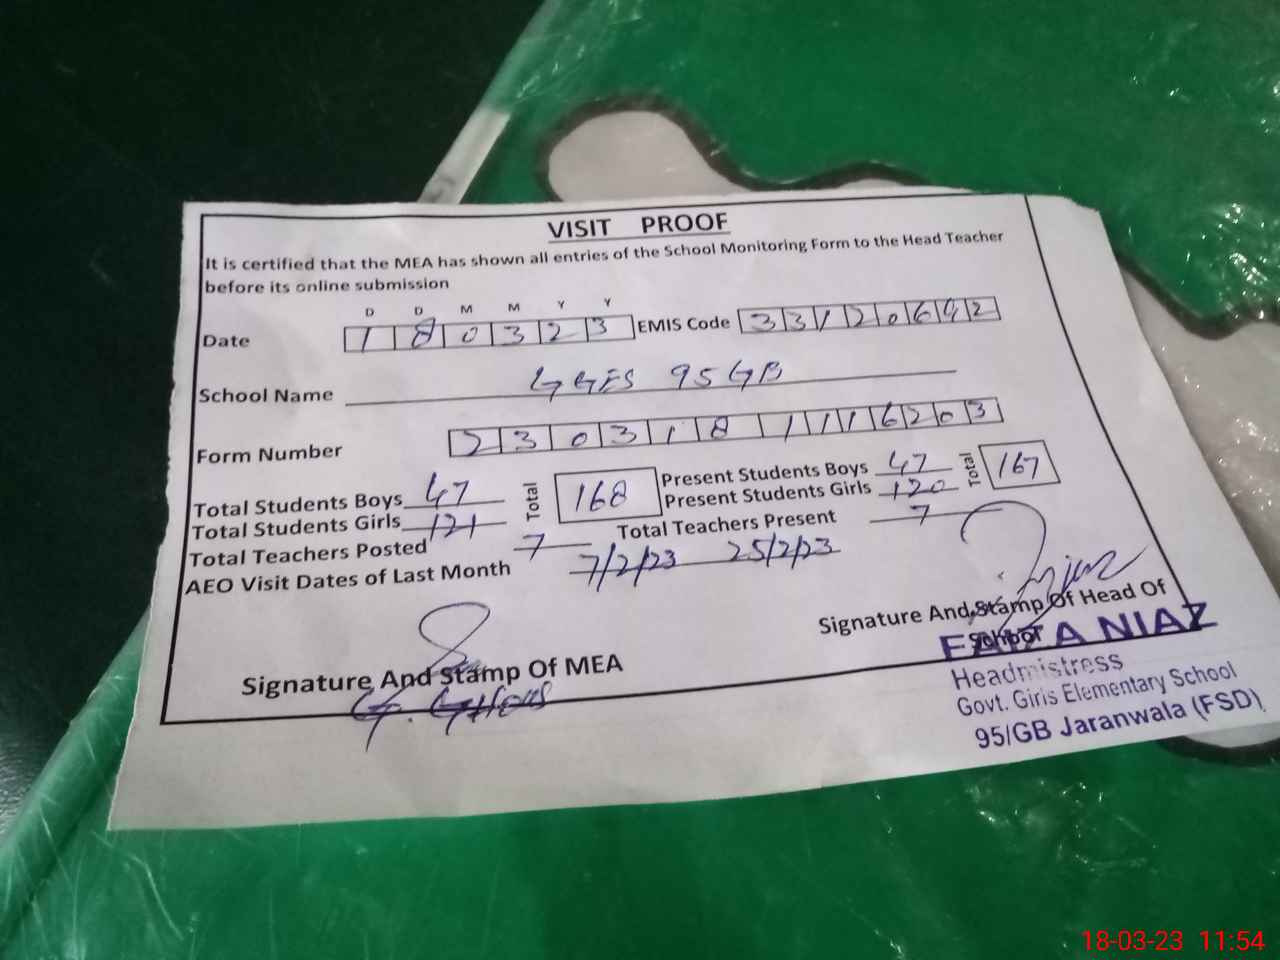 VISIT PROOF
It is certified that the MEA has shown all entries of the School Monitoring Form to the Head Teacher
before its online submission
D D M M Y Y
Date 1 8 0 3 2 3 EMIS Code 3 3 1 2 0 6 4 2
School Name GGES 95 GB
Form Number 2 3 0 3 1 8 1 1 1 6 2 0 3
Total Students Boys 47 Total 168 Present Students Boys 47 Total 167
Total Students Girls 121 Present Students Girls 120
Total Teachers Posted 7 Total Teachers Present 7
AEO Visit Dates of Last Month 7/2/23 25/2/23
Signature And Stamp Of MEA
Signature And Stamp Of Head Of
School
FAIZA NIAZ
Headmistress
Govt. Girls Elementary School
95/GB Jaranwala (FSD)
18-03-23 11:54